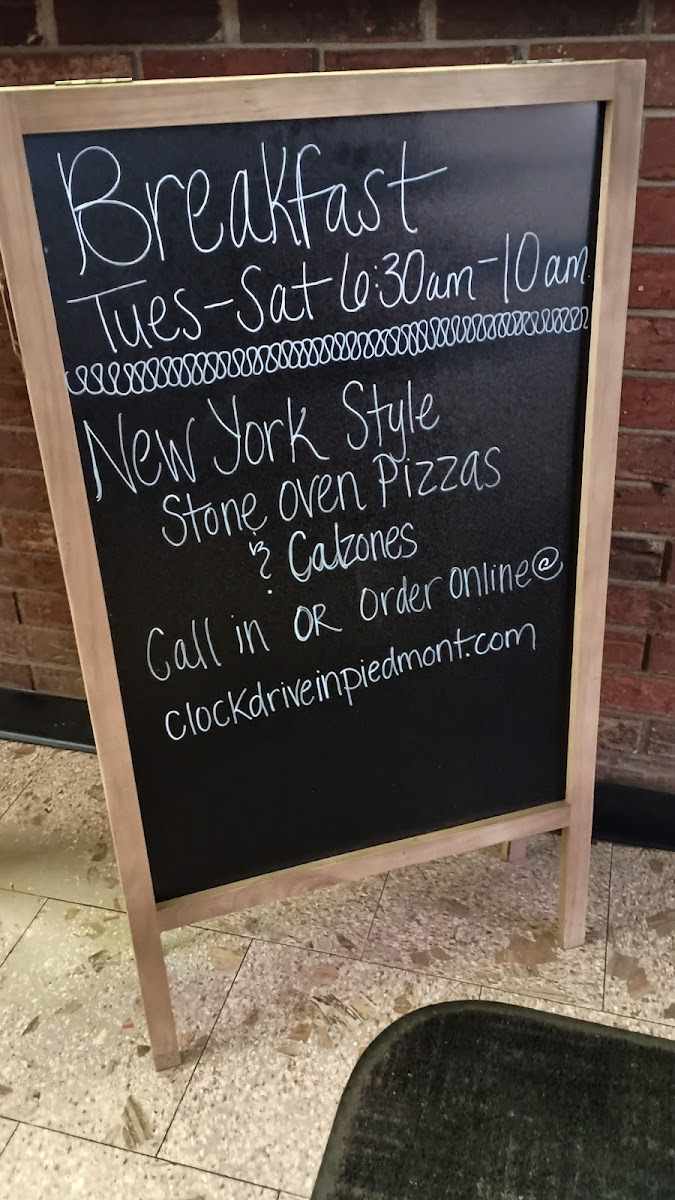 Breakfast
Tues-Sat 6:30am-10am
New York Style
Stone oven Pizzas
& Calzones
Call in OR order online@
clockdriveinpiedmont.com